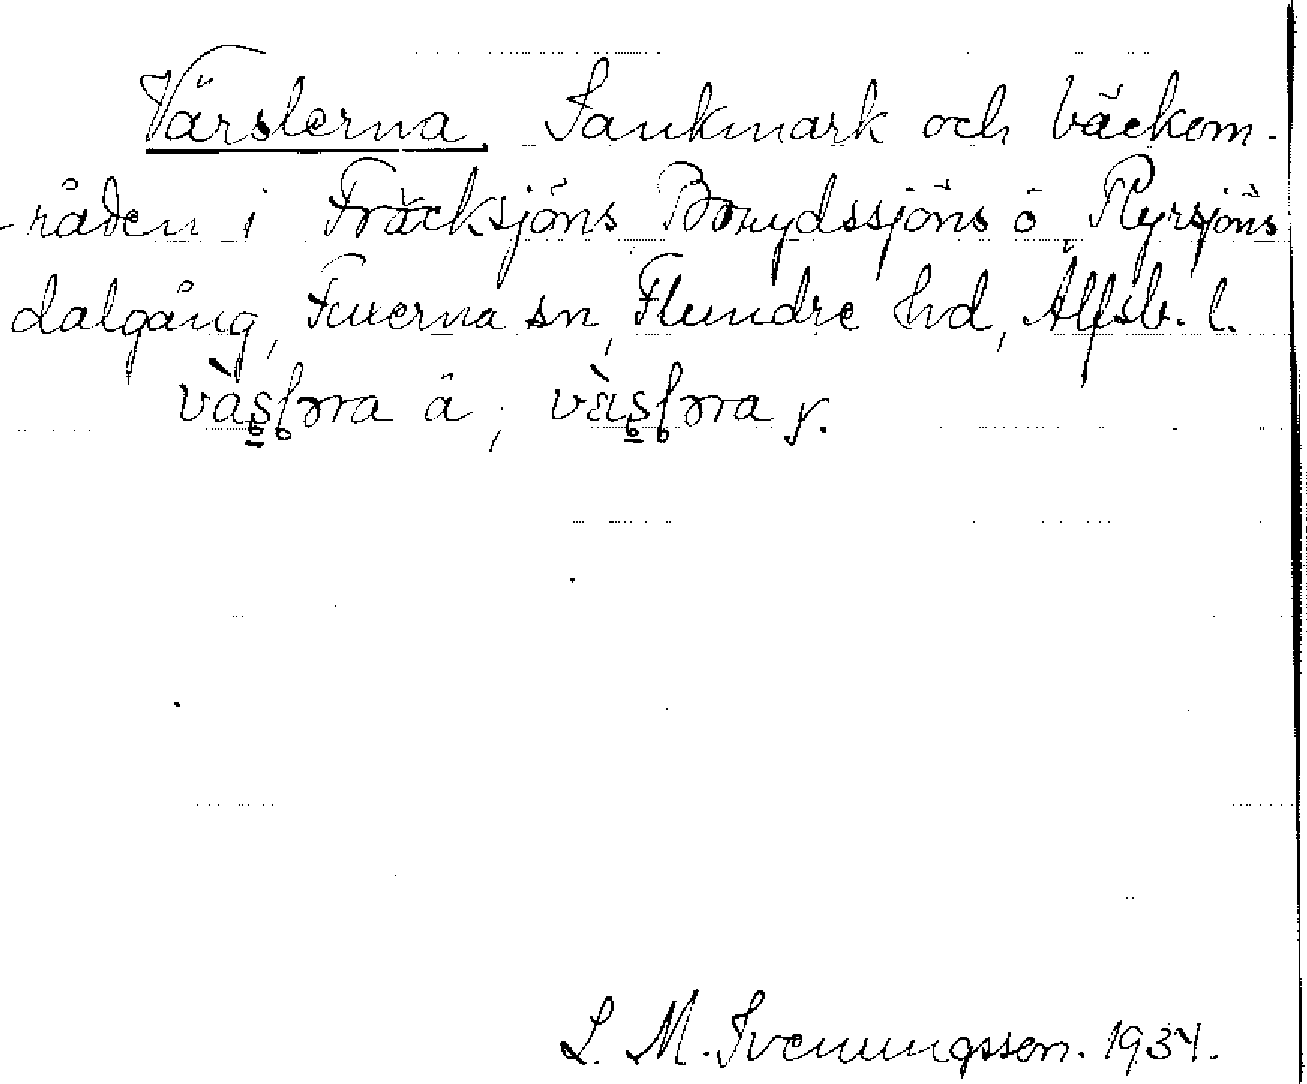 Värslerna. Sankmark och bäckom-
-råden i Fräcksjöns Boxydssjöns ö Ryrsjöns
dalgång, Fuxerna sn, Flundre hd, Älfsb. l.
å, y.
L. M. Svenungsson. 1934.